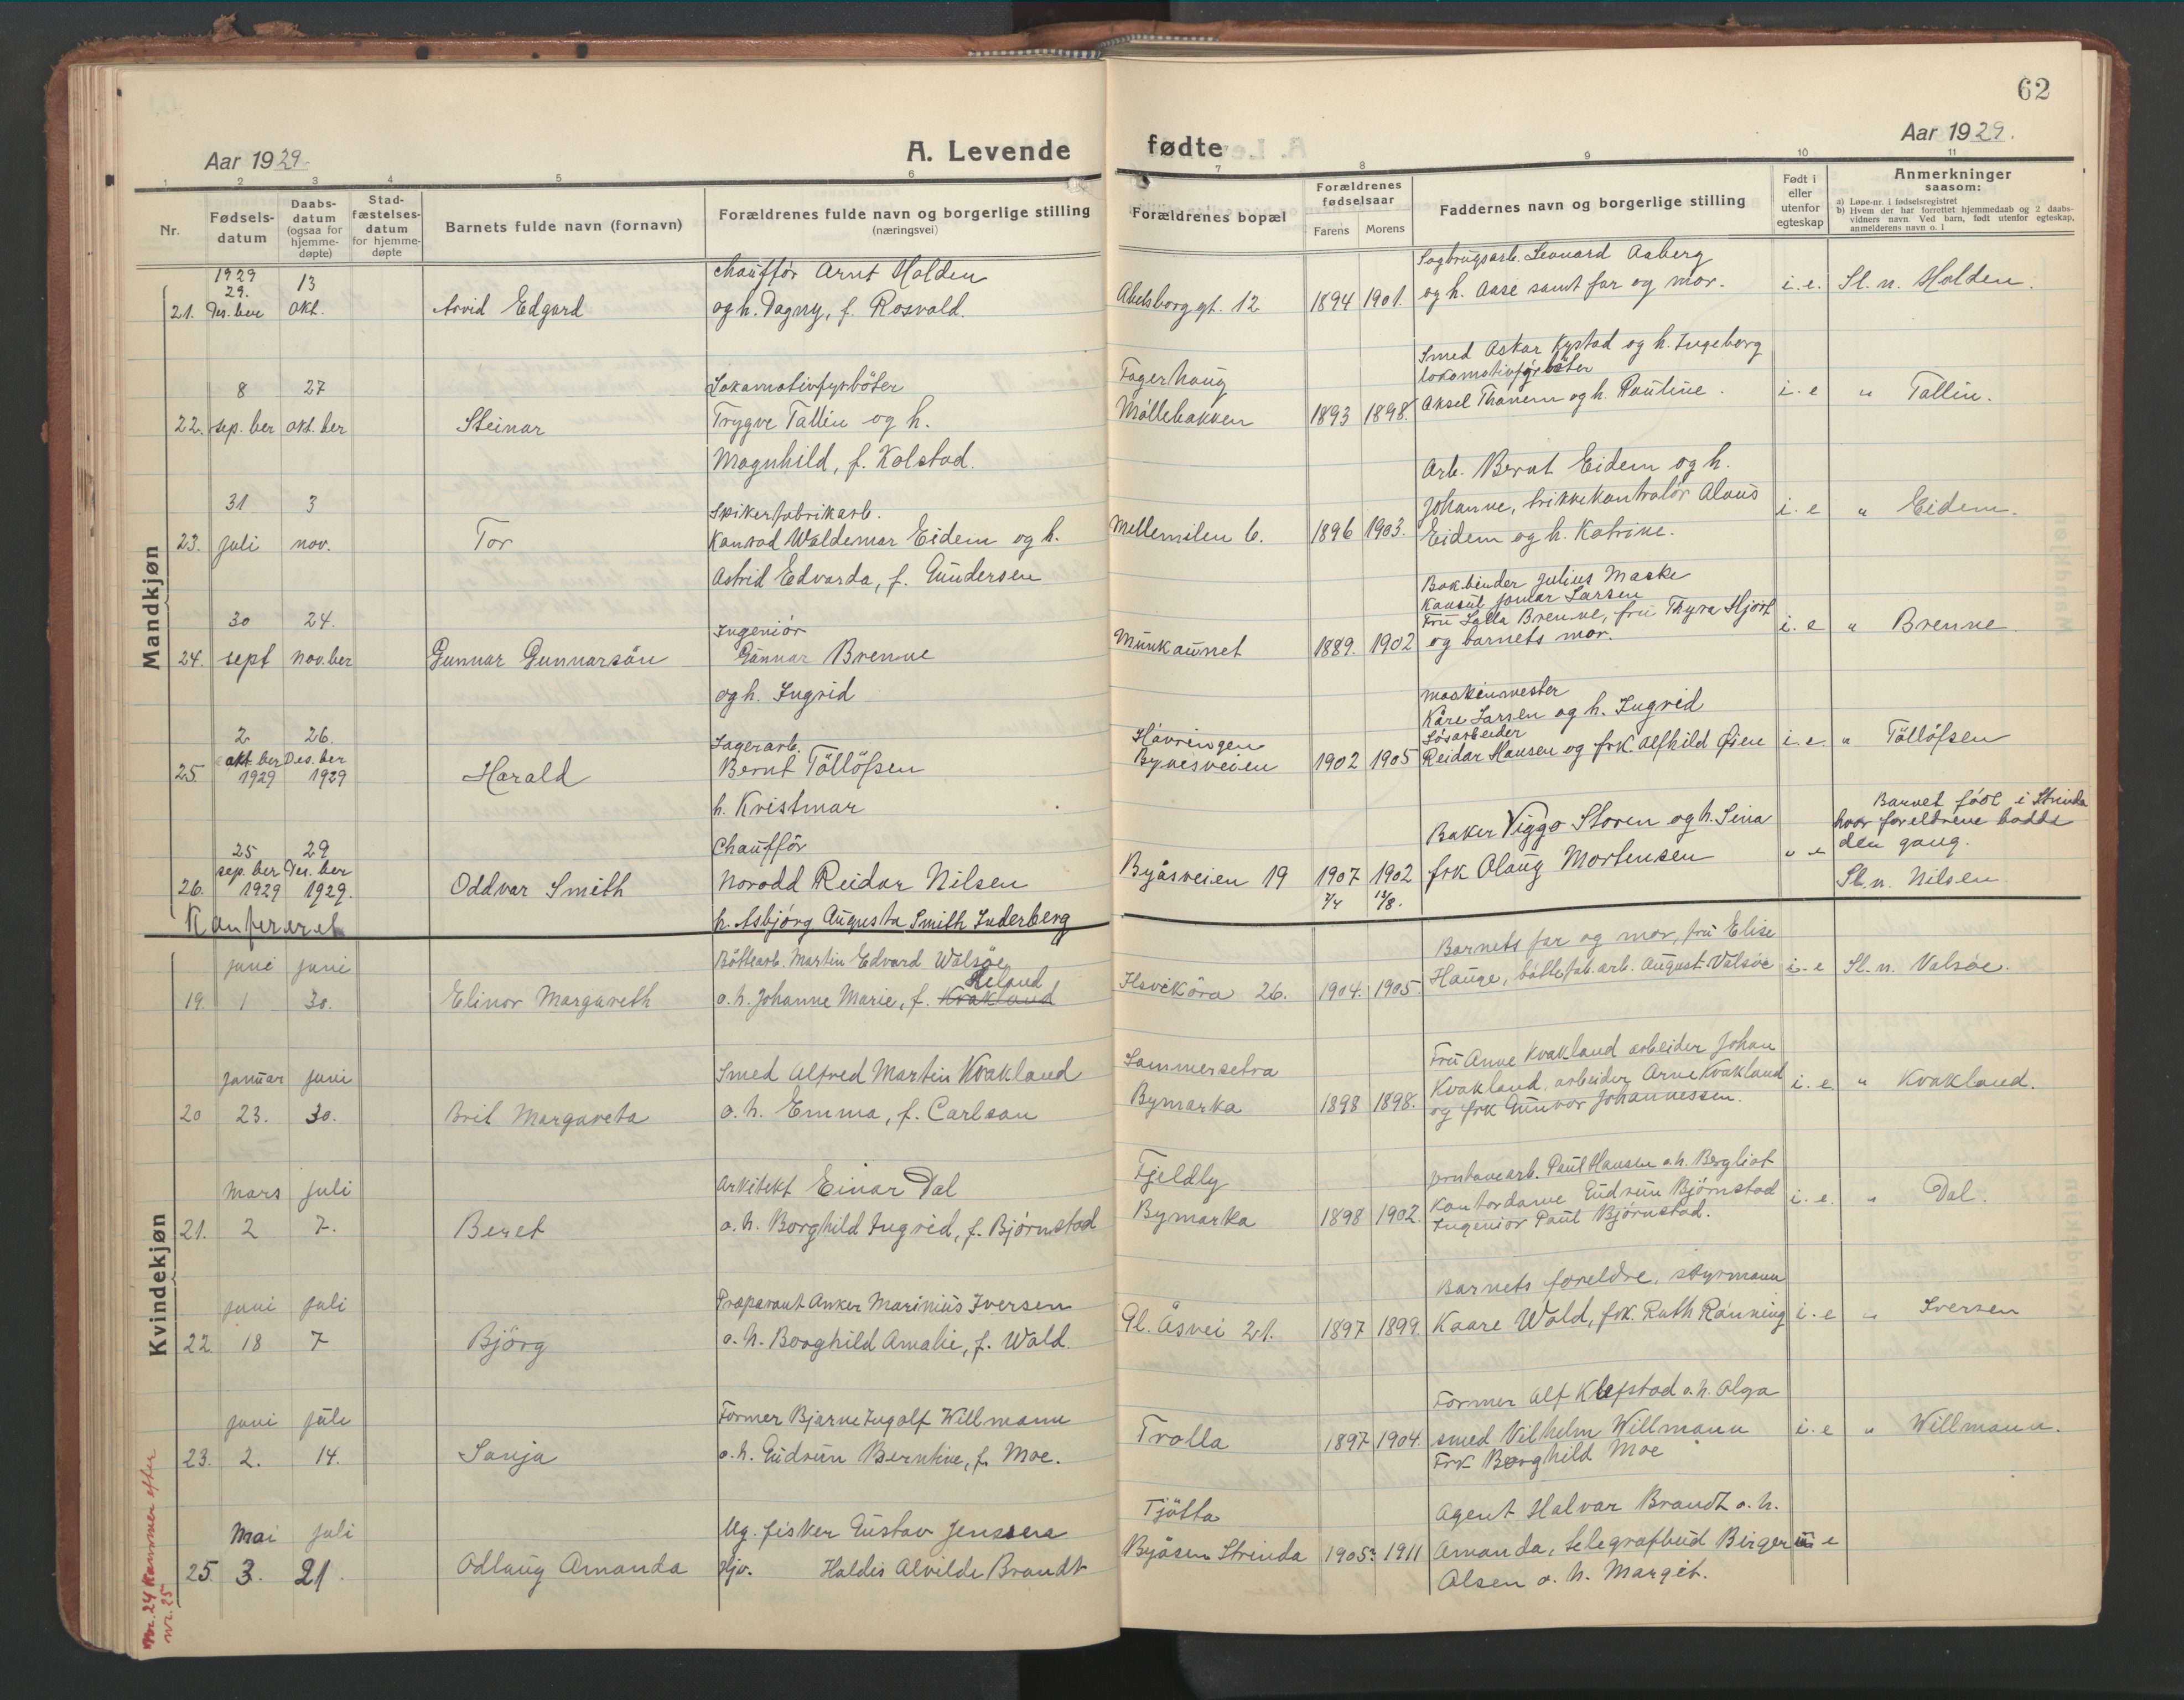 62
Aar 1929.
A. Levende
fødte
Aar 1929.
1 2 3 4 5 6 7 8 9 10 11
Nr.
Fødsels-
datum
Daabs-
datum
(ogsaa for
hjemme-
døpte)
Stad-
fæstelses-
datum
for hjemme-
døpte
Barnets fulde navn (fornavn)
Forældrenes fulde navn og borgerlige stilling
(næringsvei)
Forældrenes bopæl
Forældrenes
fødselsaar
Farens Morens
Faddernes navn og borgerlige stilling
Født i
eller
utenfor
egteskap
Anmerkninger
saasom:
a) Løpe-nr. i fødselsregistret
b) Hvem der har forrettet hjemmedaab og 2 daabs-
vidners navn. Ved barn, født utenfor egteskap,
anmelderens navn o. l
Mandkjøn
1929
29. 13 chauffør Arnt Holden Sagbrugsarb. Leonard Aaberg
21. Des.ber okt. Arvid Edgard og h. Dagny, f. Rosvold. Abelsborg gt. 12 1894 1901. og h. Aase samt far og mor. i.e. Sl. n. Holden.
8 27 Lokomotivfyrbøter Fagerhaug Smed Oskar Kystad og h. Ingeborg
lokomotivfyrbøter
22. sep.ber okt.ber Steinar Trygve Tallin og h. Møllebakken 1893 1898. Aksel Thanem og h. Pauline. i.e " Tallin.
Magnhild, f. Kolstad.
31 3 Spikerfabrikarb. Arb. Bernt Eidem og h.
Johanne, trikkekontrolør Alous
23. juli nov. Tor Konrad Waldemar Eidem og h. Mellemilen 6. 1896 1903. Eidem og h. Katrine. i.e " Eidem.
Astrid Edvarda, f. Gundersen
30 24. Ingeniør Bokbinder Julius Maske
Konsul Jomar Larsen
Fru Lalla Brenne, fru Thyra Hjort
24. sept nov.ber Gunnar Gunnarsøn Gunnar Brenne Munkaunet 1889. 1902 og barnets mor. i.e " Brenne
og h. Ingrid
2 26. Lagerarb. Håvringen maskinmester
Kåre Larsen og h. Ingrid
Løsarbeider
25. okt.ber 1929 Des.ber 1929 Harald Bernt Tøllöfsen Bynesveien 1902 1905 Reidar Hansen og frk. Alfhild Øien i.e " Tøllöfsen
h. Kristmar
25 29 Chauffør Baker Viggo Storen og h. Sina Barnet født i Strinda
hvor foreldrene bodde
den gang.
26. sep.ber 1929 Des.ber 1929. Oddvar Smith Norodd Reidar Nilsen Byåsveien 19 1907 1902 frk Olaug Mortensen " e Sl. n. Nilsen
7/4 12/8.
Konfereret h. Asbjørg Augusta Smith Inderberg
Kvindekjøn
juni juni Bøttearb. Martin Edvard Walsøe Barnets far og mor, fru Elise
Reland
19. 1 30. Elinor Margareth o.h. Johanne Marie, f. Kvakland Ilsvikøra 26. 1904. 1905. Hauge, bøttefab.arb. August Valsøe i.e Sl. n. Valsøe.
januar juni Smed Alfred Martin Kvakland Sommersetra Fru Anne Kvakland arbeider Johan
20 23. 30. Brit Margareta o.h. Emma, f. Carlson Bymarka 1898 1898. Kvakland, arbeider Arne Kvakland i.e. " Kvakland.
og frk Gunvor Johannessen.
mars juli Arkitekt Einar Dal Fjeldly Jernbanearb. Paul Hansen o.h. Bergliot
21. 2 7. Beret o.h. Borghild Ingrid, f. Bjørnstad Bymarka 1898 1902. Kontordame Gudrun Bjørnstad i.e. " Dal.
Ingeniør Paul Bjørnstad.
juni juli Præparant Anker Marinius Iversen Barnets foreldre, styrmann
22. 18 7 Bjørg o.h. Borghild Amalie, f. Wold. Gl. Åsvei 21. 1897 1899. Kaare Wold, frk. Ruth Rønning i.e " Iversen
juni juli Former Bjarne Ingolf Willmann Former Alf Klefstad o.h. Olga
23. 2. 14. Sonja o.h. Gudrun Berntine, f. Moe. Trolla 1897 1904. smed Vilhelm Willmann i.e " Willmann.
Frk Borghild Moe
Mai juli Ug. fisker Gustav Jenssen Tjøtta Agent Halvar Brandt o.h.
25. 3. 21. Odlaug Amanda Hjv. Haldis Alvilde Brandt Byåsen Strinda 1905 1911 Amanda, telegrafbud Birger u e
Olsen o.h. Margit.
Nr. 24 kommer efter
nr. 25